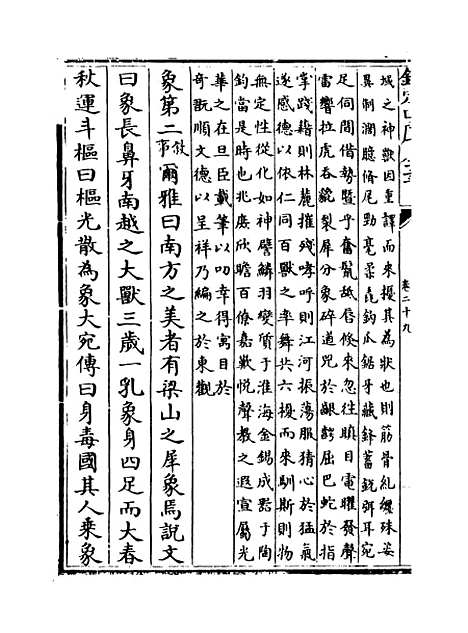 域之神獸因重譯而來擾其為狀也則筋骨糺纒殊姿
異制濶臆脩尾勁毫柔毳鉤瓜鋸牙藏鋒蓄銳弭耳宛
足伺間借勢曁乎奮鬛舐唇倏來忽往瞋目電曜發聲
雷響拉虎吞貔裂犀分象碎道兕於齦齶屈巴蛇於指
掌踐藉則林麓摧殘哮呼則江河振蕩服猜心於猛氣
遂感德以依仁同百獸之率舞共六擾而來馴斯則物
無定性從化如神譬鱗羽變質于淮海金錫成器于陶
鈞當是時也兆庶欣瞻百僚嘉歎悅聲教之遐宣屬光
華之在旦臣載筆以叨幸得寓目於
奇翫順文德以呈祥乃編之於東觀
象第二 敘事 爾雅曰南方之美者有梁山之犀象焉說文
曰象長鼻牙南越之大獸三歲一乳象身四足而大春
秋運斗樞曰樞光散為象大宛傳曰身毒國其人乗象
卷二十九